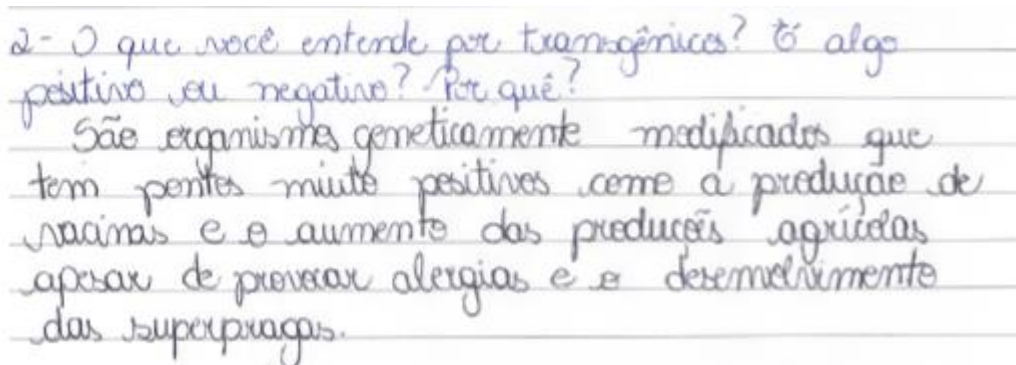 2- O que você entende por transgênicos? É algo
positivo ou negativo? Por quê?
São organismos geneticamente modificados que
tem pontos muito positivos como a produção de
vacinas e o aumento das produções agrícolas
apesar de provocar alergias e o desenvolvimento
das superpragas.